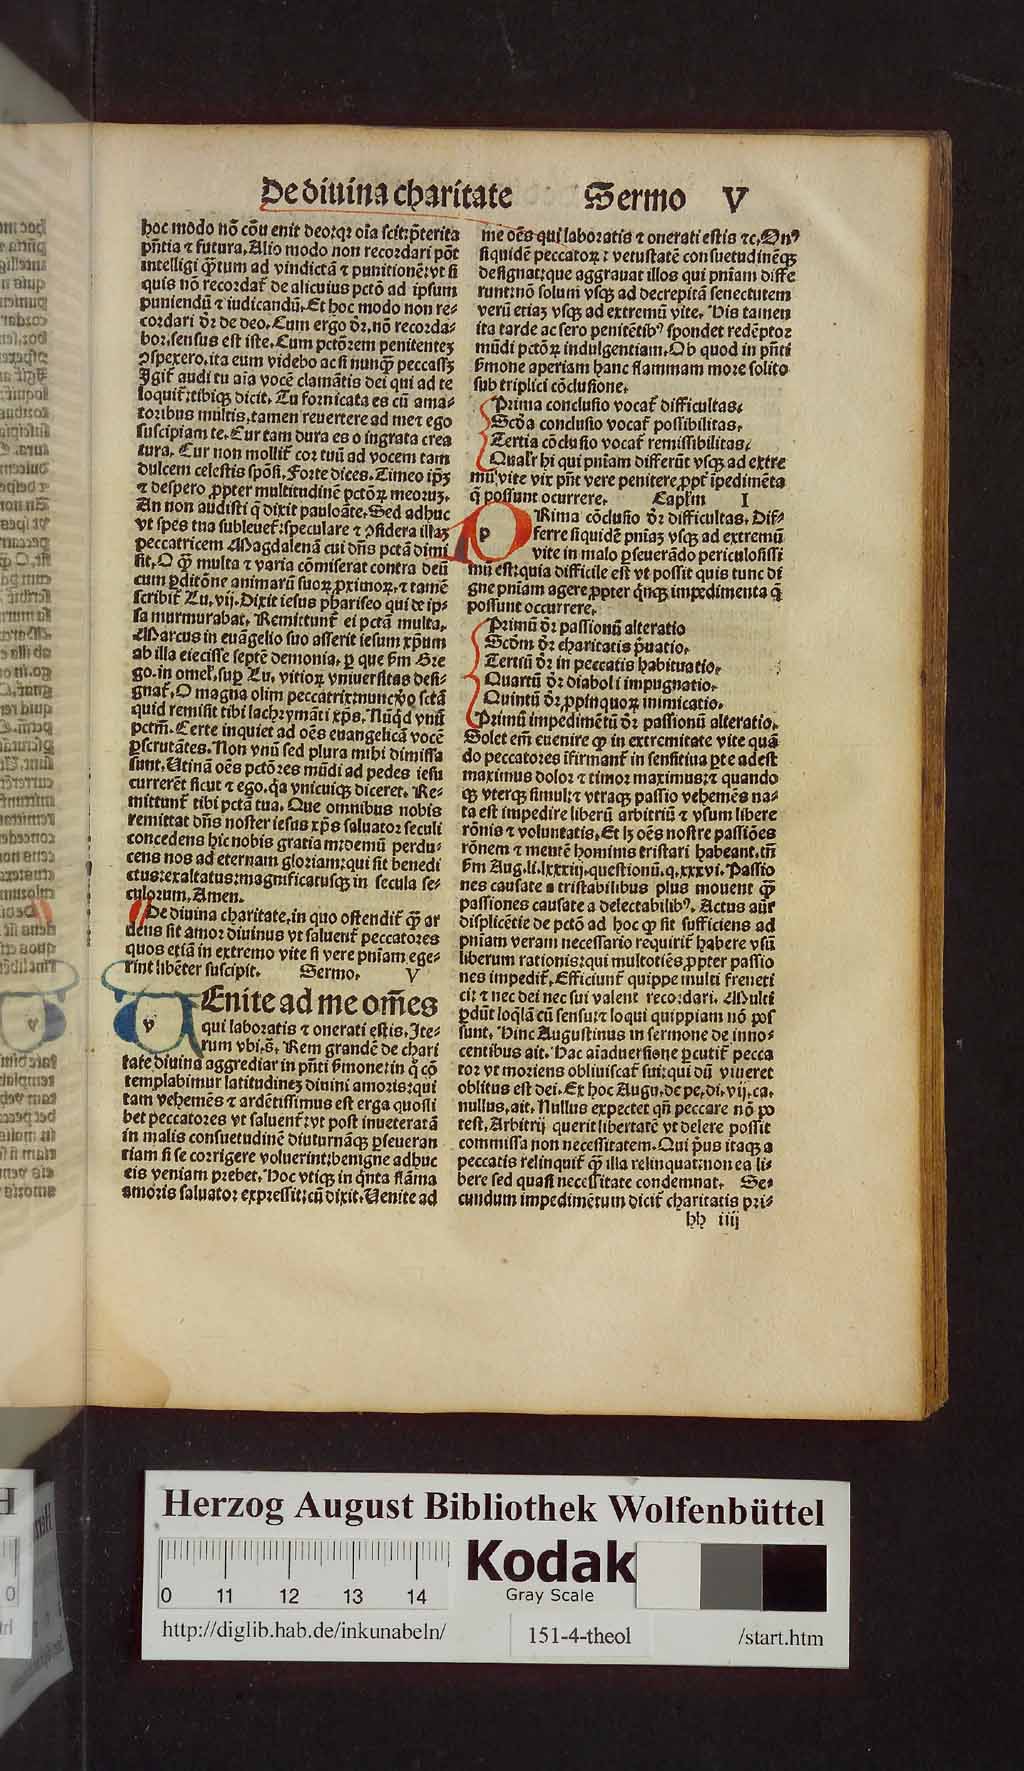 De diuina charitate Sermo V
hoc modo nõ cõu enit deo:qꝛ oĩa scit:p̃terita
pñtia ⁊ futura. Alio modo non recordari põt
intelligi q̃tum ad vindictã ⁊ punitionẽ:vt si
quis nõ recordat̃ de alicuius pctõ ad ipsum
puniendũ ⁊ iudicandũ. Et hoc modo non re-
cordari dr̃ de deo. Cum ergo dr̃, nõ recorda-
bor, sensus est iste. Cum pctõrem penitentez
ꝯspexero, ita eum videbo ac si nunq̃ peccassz
Igit̃ audi tu aĩa vocẽ clamãtis dei qui ad te
loquit̃:tibiqꝫ dicit. Tu fornicata es cũ ama-
toribus multis, tamen reuertere ad me ⁊ ego
suscipiam te. Cur tam dura es o ingrata crea
tura. Cur non mollit̃ cor tuũ ad vocem tam
dulcem celestis spõsi. Forte dices. Timeo ipꝫ
⁊ despero ꝓpter multitudinẽ pctõꝝ meoꝛuꝫ.
An non audisti q̃ dixit pauloãte. Sed adhuc
vt spes tua subleuet̃:speculare ⁊ ꝯsidera illaꝫ
peccatricem Magdalenã cui dñs pctã dimi
sit. O q̃ multa ⁊ varia cõmiserat contra deũ
cum ꝑditõne animarũ suoꝝ ꝓximoꝝ, ⁊ tamẽ
scribit̃ Lu. vij. Dixit iesus phariseo qui de ip-
sa murmurabat. Remittunt̃ ei pctã multa.
Marcus in euãgelio suo asserit iesum xp̃um
ab illa eiecisse septẽ demonia. ꝑ que s̃m Gre
go. in omel̃. suꝑ Lu. vitioꝝ vniuersitas desi-
gnat̃. O magna olim peccatrix:nunc ꝟo sctã
quid remisit tibi lachrymãti xp̃s. Nũq̃d vnũ
pctm̃. Certe inquiet ad oẽs euangelicã vocẽ
ꝑscrutãtes. Non vnũ sed plura mihi dimissa
sunt. Utinã oẽs pctõres mũdi ad pedes iesu
currerẽt sicut ⁊ ego. q̃a vnicuiqꝫ diceret. Re-
mittunt̃ tibi pctã tua. Que omnibus nobis
remittat dñs noster iesus xp̃s saluator seculi
concedens hic nobis gratiam:demũ perdu-
cens nos ad eternam gloriam:qui sit benedi
ctus:exaltatus:magnificatusqꝫ in secula se-
culorum. Amen.
De diuina charitate, in quo ostendit̃ q̃ ar
dens sit amor diuinus vt saluent̃ peccatores
quos etiã in extremo vite si vere pniam ege-
rint libẽter suscipit. Sermo. V
v Enite ad me om̃es
qui laboratis ⁊ onerati estis. Ite-
rum vbi.s̃. Rem grandẽ de chari
tate diuina aggrediar in pñti s̃mone:in q̃ cõ
templabimur latitudineꝫ diuini amoris:qui
tam vehemẽs ⁊ ardẽtissimus est erga quosli
bet peccatores vt saluent̃:vt post inueteratã
in malis consuetudinẽ diuturnãqꝫ ꝑseueran
tiam si se corrigere voluerint:benigne adhuc
eis veniam prebet. Hoc vtiqꝫ in q̃nta flãma
amoris saluator expressit:cũ dixit. Uenite ad
me oẽs qui laboratis ⁊ onerati estis ⁊c. Onꝰ
siquidẽ peccatoꝝ: vetustatẽ consuetudinẽqꝫ
designat:que aggrauat illos qui pniam diffe
runt:nõ solum vsqꝫ ad decrepitã senectutem
verũ etiaꝫ vsqꝫ ad extremũ vite. His tamen
ita tarde ac sero penitẽtibꝰ spondet redẽptor
mũdi pctõꝝ indulgentiam. Ob quod in pñti
s̃mone aperiam hanc flammam more solito
sub triplici cõclusione.
Prima conclusio vocat̃ difficultas.
Scd̃a conclusio vocat̃ possibilitas.
Tertia cõclusio vocat̃ remissibilitas.
Qualr̃ hi qui pniam differũt vsqꝫ ad extre
mũ vite vix pñt vere penitere ꝓpt̃ ipedimẽta
q̃ possunt occurrere. Capl̃m I
p Rima cõclusio dr̃ difficultas. Dif-
ferre siquidẽ pniaꝫ vsqꝫ ad extremũ
vite in malo ꝑseuerãdo periculosissi
mũ est:quia difficile est vt possit quis tunc di
gne pniam agere ꝓpter q̃nqꝫ impedimenta q̃
possunt occurrere.
Primũ dr̃ passionũ alteratio
Scdm̃ dr̃ charitatis p̃uatio.
Tertiũ dr̃ in peccatis habituatio.
Quartũ dr̃ diaboli impugnatio.
Quintũ dr̃ ꝓpinquoꝝ inimicatio.
Primũ impedimẽtũ dr̃ passionũ alteratio.
Solet em̃ euenire ꝙ in extremitate vite quã
do peccatores ĩfirmant̃ in sensitiua ꝑte adest
maximus dolor ⁊ timor maximus:⁊ quando
qꝫ vterqꝫ simul:⁊ vtraqꝫ passio vehemẽs na-
ta est impedire liberũ arbitriũ ⁊ vsum libere
rõnis ⁊ voluntatis. Et lꝫ oẽs nostre passiões
rõnem ⁊ mentẽ hominis tristari habeant. tñ
s̃m Aug. li. lxxxiij. questionũ. q. xxxvi. Passio
nes causate a tristabilibus plus mouent q̃
passiones causate a delectabilibꝰ. Actus aũt
displicẽtie de pctõ ad hoc ꝙ sit sufficiens ad
pniam veram necessario requirit̃ habere vsũ
liberum rationis:qui multotiẽs ꝓpter passio
nes impedit̃. Efficiunt̃ quippe multi freneti
ci: ⁊ nec dei nec sui valent recordari. Multi
ꝑdũt loq̃lã cũ sensu:⁊ loqui quippiam nõ pos
sunt. Hinc Augustinus in sermone de inno-
centibus ait. Hac aĩaduersione ꝑcutit̃ pecca
tor vt moriens obliuiscat̃ sui:qui dũ viueret
oblitus est dei. Ex hoc Augu. de pe. di. vij. ca.
nullus. ait. Nullus expectet qñ peccare nõ po
test. Arbitrij querit libertatẽ vt delere possit
commissa non necessitatem. Qui p̃us itaqꝫ a
peccatis relinquit̃ q̃ illa relinquat:non ea li-
bere sed quasi necessitate condemnat. Se-
cundum impedimẽtum dicit̃ charitatis pri-
hh iiij
Herzog August Bibliothek Wolfenbüttel
0 11 12 13 14
Kodak
Gray Scale
http://diglib.hab.de/inkunabeln/
151-4-theol
/start.htm